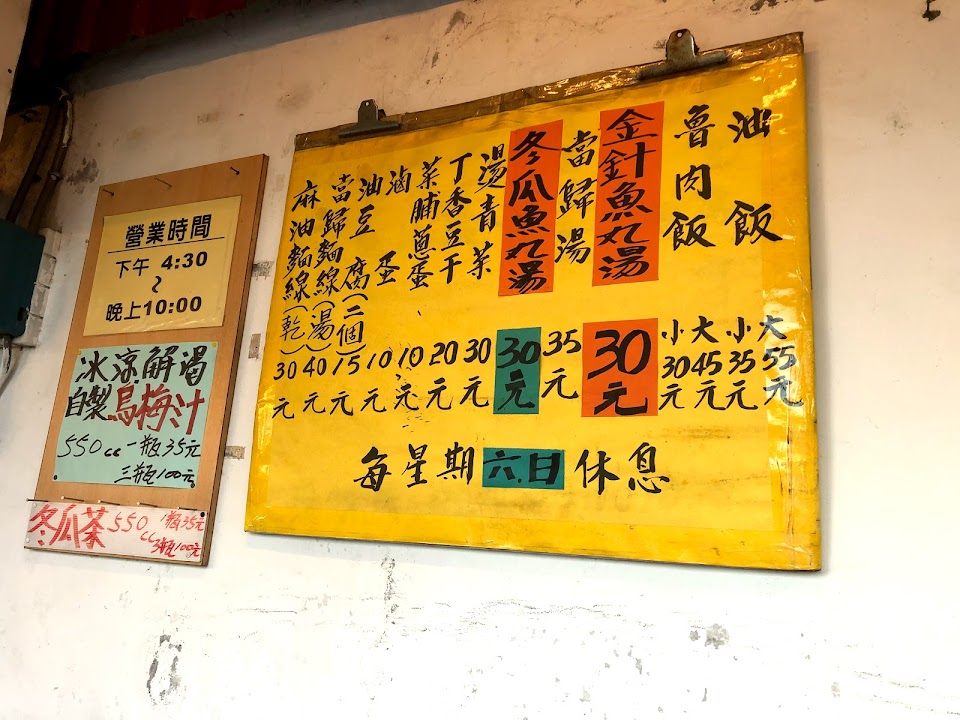 油飯 大55元 小35元
魯肉飯 大45元 小30元
金針魚丸湯 30元
當歸湯 35元
冬瓜魚丸湯 30元
燙青菜 30元
丁香豆干 20元
菜脯蔥蛋 10元
滷蛋 10元
油豆腐(二個) 15元
當歸麵線(湯) 40元
麻油麵線(乾) 30元
每星期六.日休息
營業時間
下午 4:30
~
晚上10:00
冰涼解渴
自製烏梅汁
550cc一瓶35元
三瓶100元
冬瓜茶 550cc 1瓶35元
3瓶100元